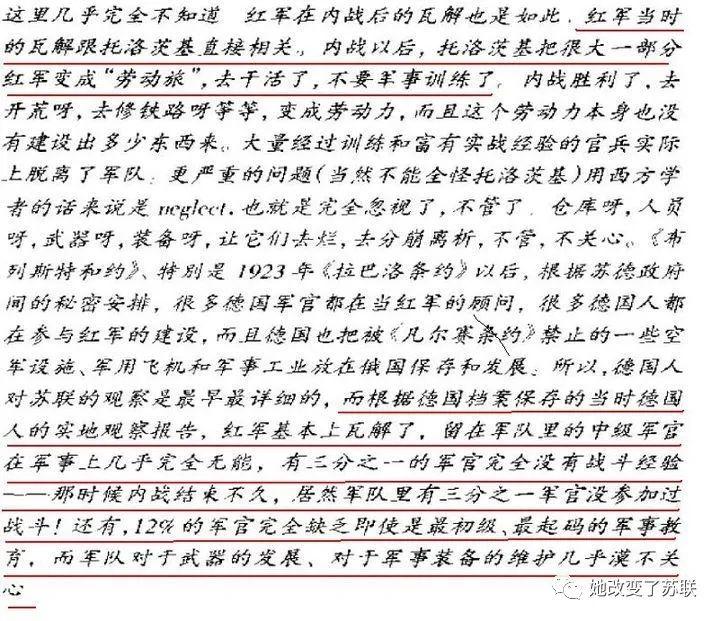 这里几乎完全不知道 红军在内战后的瓦解也是如此.红军当时
的瓦解跟托洛茨基直接相关。内战以后,托洛茨基把很大一部分
红军变成“劳动旅”,去干活了,不要军事训练了。内战胜利了,去
开荒呀,去修铁路呀等等,变成劳动力,而且这个劳动力本身也没
有建设出多少东西来。大量经过训练和富有实战经验的官兵实际
上脱离了军队。更严重的问题(当然不能全怪托洛茨基)用西方学
者的话来说是neglect.也就是完全忽视了,不管了。仓库呀,人员
呀,武器呀,装备呀,让它们去烂,去分崩离析,不管,不关心。《布
列斯特和约》、特别是1923年《拉巴洛条约》以后,根据苏德政府
间的秘密安排,很多德国军官都在当红军的顾问,很多德国人都
在参与红军的建设,而且德国也把被《凡尔赛条约》禁止的一些空
军设施、军用飞机和军事工业放在俄国保存和发展。所以,德国人
对苏联的观察是最早最详细的,而根据德国档案保存的当时德国
人的实地观察报告,红军基本上瓦解了,留在军队里的中级军官
在军事上几乎完全无能,有三分之一的军官完全没有战斗经验
——那时候内战结束不久,居然军队里有三分之一军官没参加过
战斗!还有,12%的军官完全缺乏即使是最初级、最起码的军事教
育,而军队对于武器的发展、对于军事装备的维护几乎漠不关
心
她改变了苏联